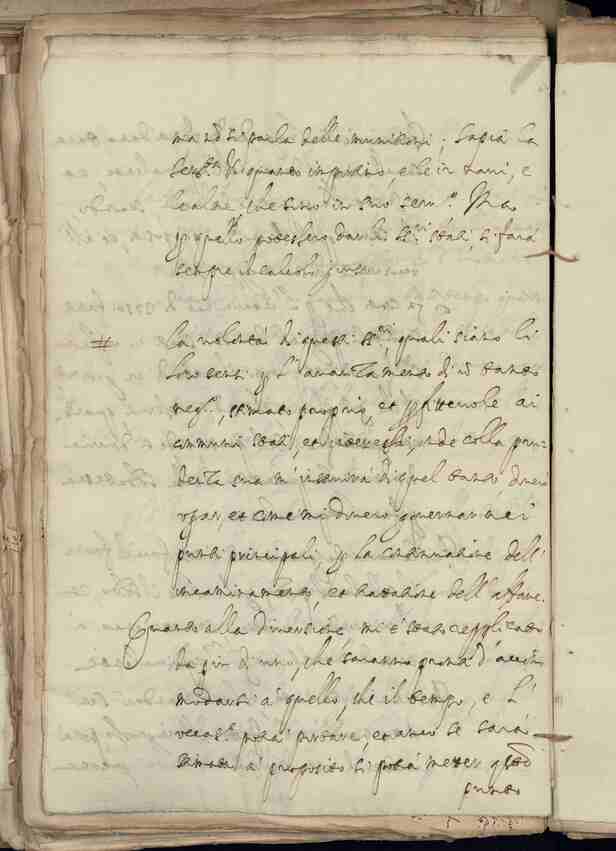 ma nõ si parla delle munitioni; saprà la
Ser.tà V. quanto importino, e le in navi, e
le altre, che sono in suo serv.o. Ma
potessero dar li SS.ri Stati, si farà
sempre il calculo
# la volontà di questi SS.ri, quali siano li
loro sensi p l' avanzamento di nõ tanto
neg.o, stimato proprio, et profittevole ai
communi stati, et interessi, onde colla pru-
denza sua m' insinuirà di quel tanto, doverò
oprar, et come mi doverò governar nei
punti principali, p la continuatione dell'
incaminamento, et trattatione dell' affare.
Quanto alla diversione, mi è stato replicato
da più di uno, che saranno pronti d' accom
modarsi a quello, che il tempo, e l'
occas.e potrà portare, et anco se sarà
stimato a proposito si potrà metter q̃sto
punto